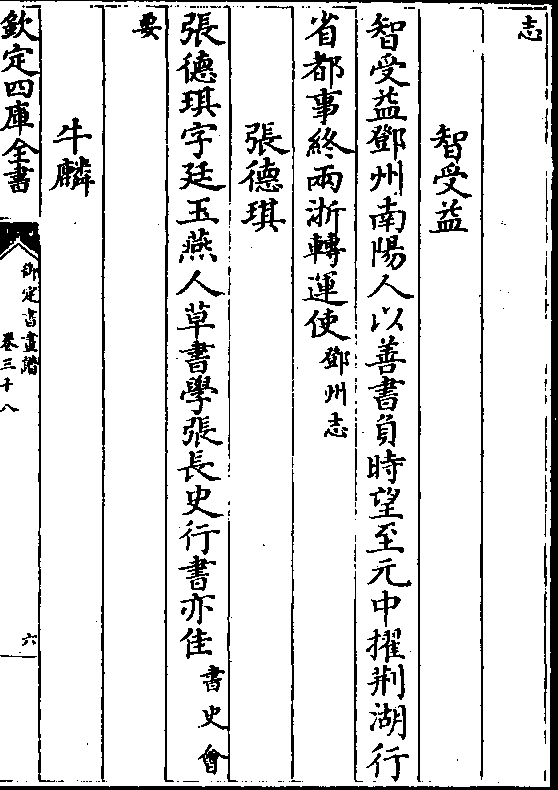 志
智受益
智受益鄧州南陽人以善書負時望至元中擢荆湖行
省都事終兩浙轉運使鄧州志
張德琪
張德琪字廷玉燕人草書學張長史行書亦佳書史會
要
牛麟
欽定四庫全書
御定書畫譜
卷三十八
六